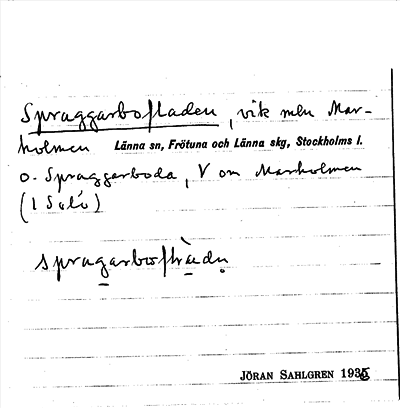 Spraggarbofladen, vik mln Mar-
holmen Länna sn, Frötuna och Länna skg, Stockholms l.
o. Spraggarboda, V om Marholmen
(1 Sulö)
spragarboflädn
JÖRAN SAHLGREN 1935